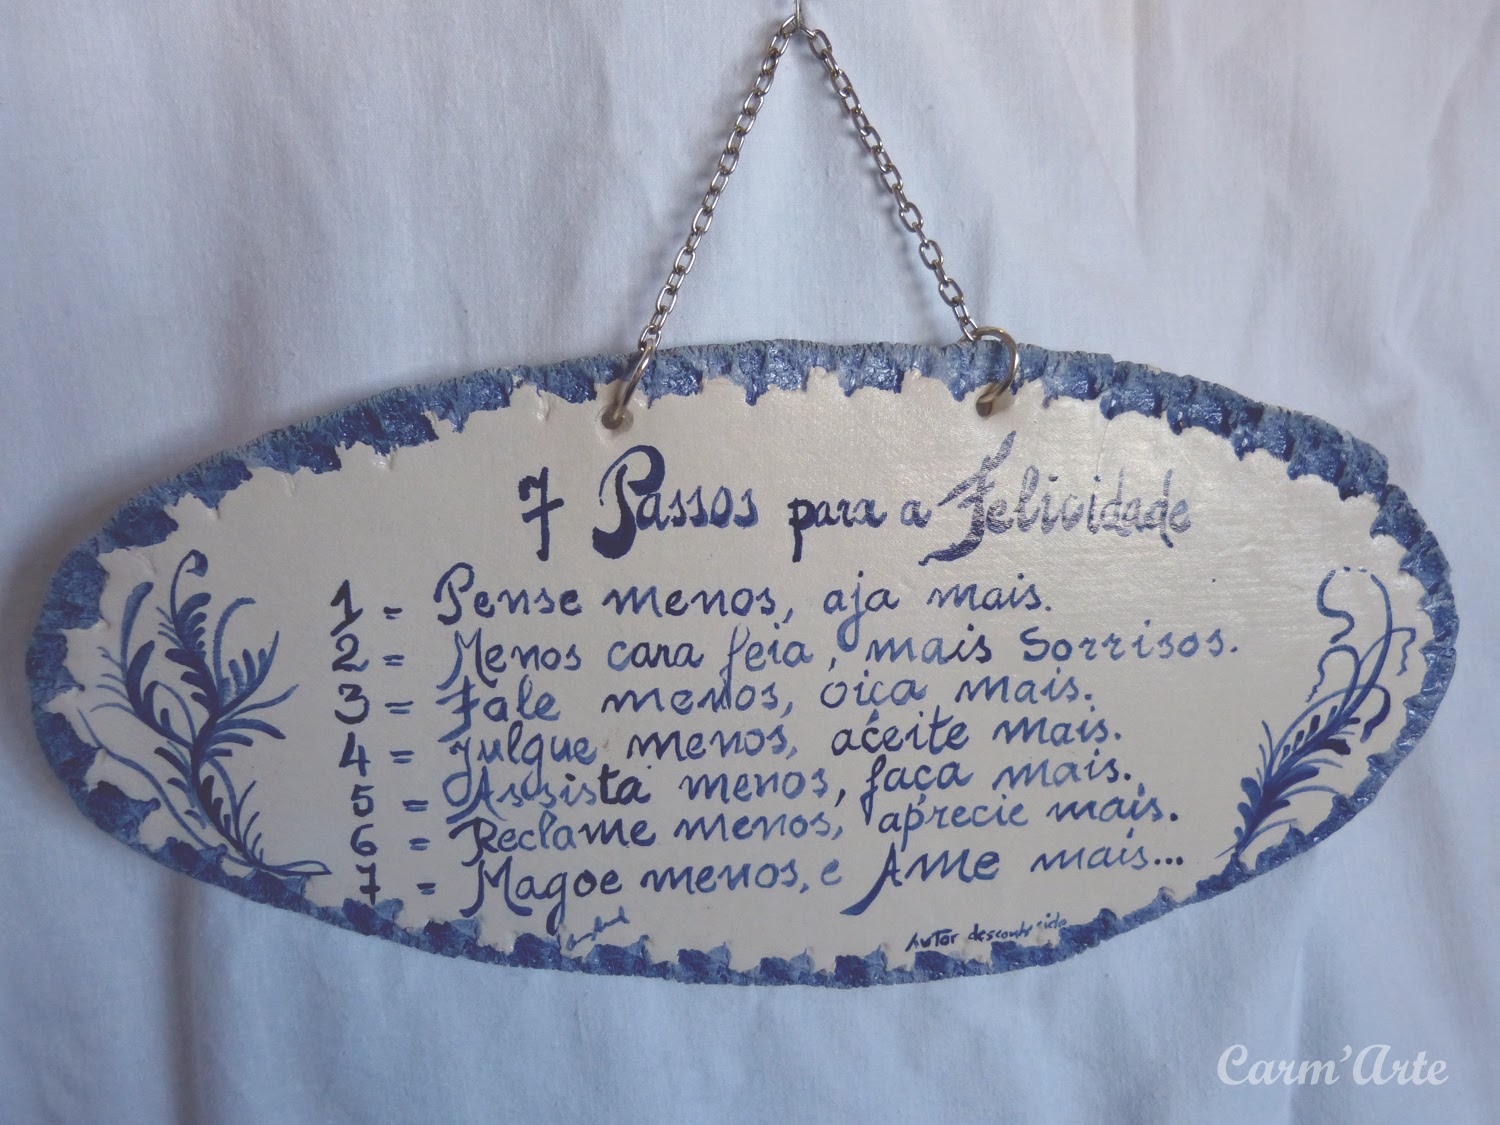 7 Passos para a Felicidade
1 = Pense menos, aja mais.
2 = Menos cara feia, mais Sorrisos.
3 = Fale menos, oiça mais.
4 = Julgue menos, aceite mais.
5 = Assista menos, faça mais.
6 = Reclame menos, aprecie mais.
7 = Magoe menos, e AMe mais...
AuTor desconhecido
Carm'Arte